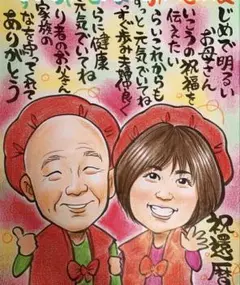 じめで明るい
お母さん
いこうの祝福を
伝えたい
らいこれからも
っと元気でいてね
歩み夫婦良く
らに健康
元気でいてね
り者のお父さん
家族の
を守ってくれて
ありがとう
祝還暦